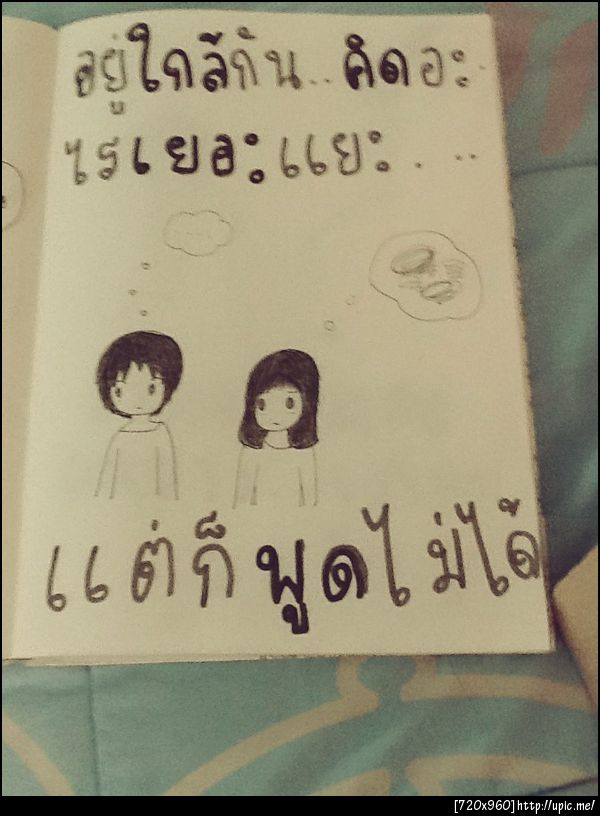 อยู่ใกล้กัน.. คิดอะ.
ไรเยอะแยะ. . ..
แต่ก็พูดไม่ได้
[720x960]http://upic.me/